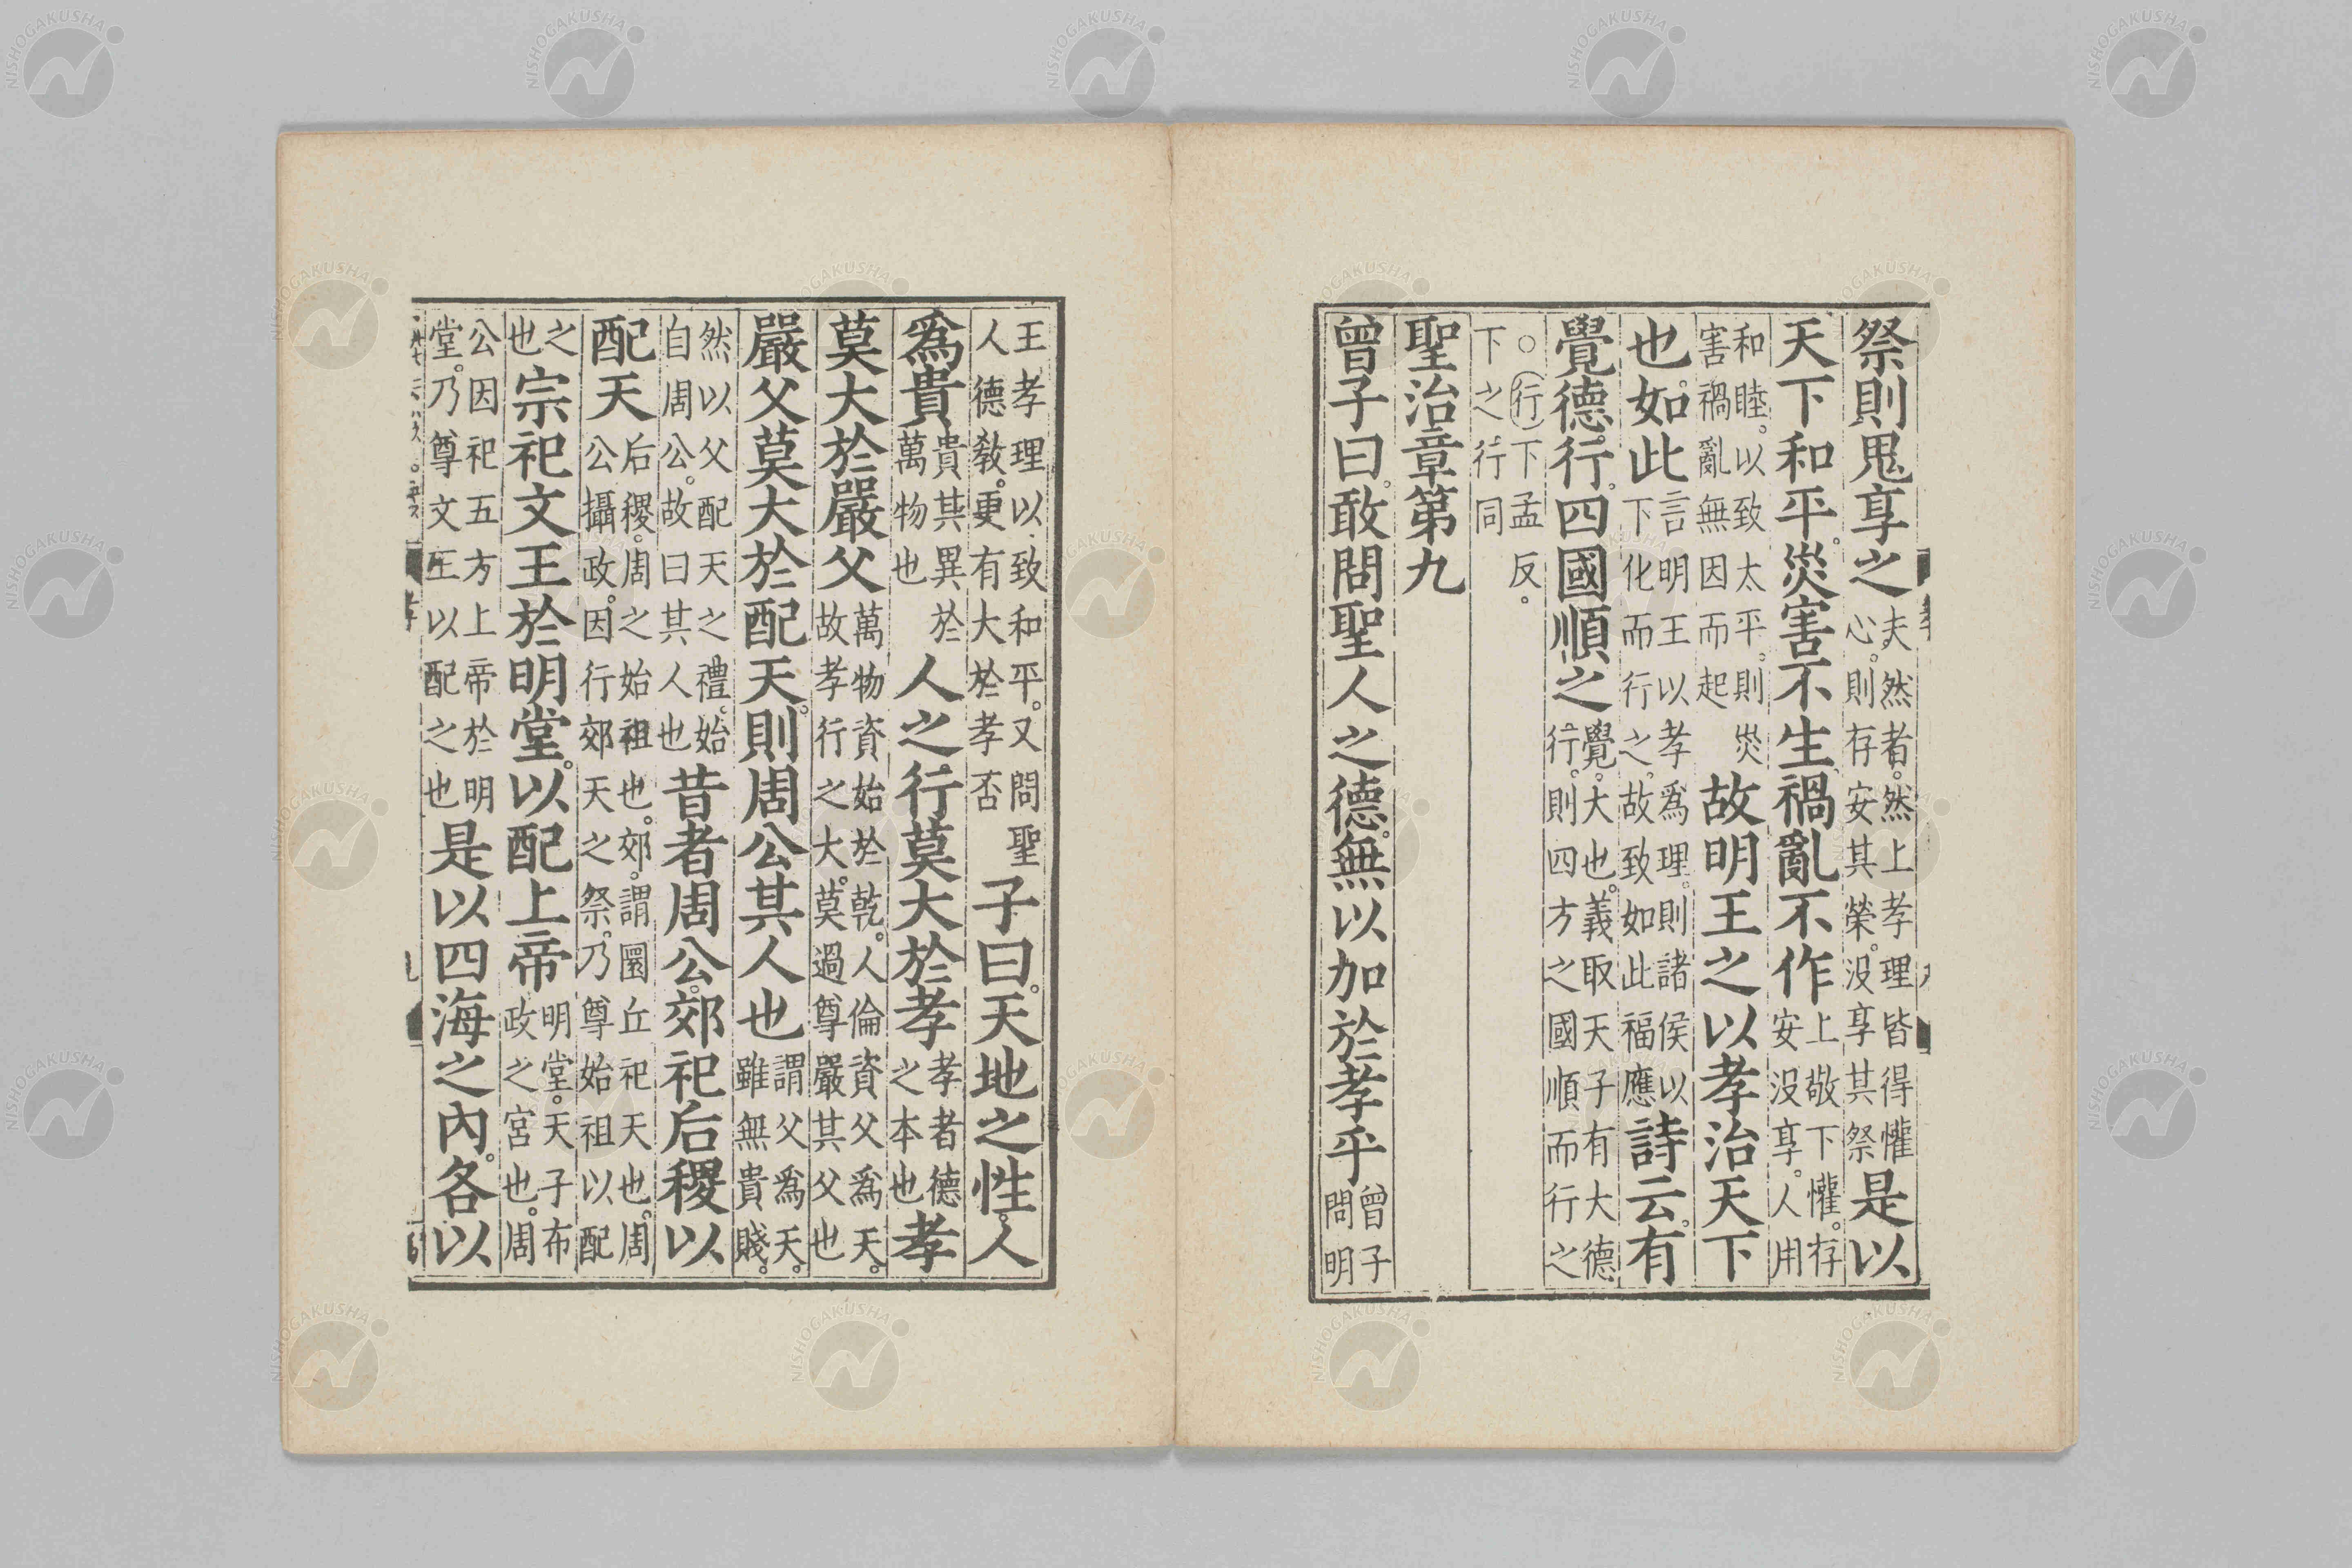 祭則鬼享之夫然者。然上孝理皆得懽
心。則存安其榮。沒享其祭是以
天下和平。災害不生。禍亂不作上敬下懽。存
安沒享。人用
和睦。以致太平。則災
害禍亂無因而起故明王之以孝治天下
也。如此言明王以孝爲理。則諸侯以
下化而行之。故致如此福應詩云。有
覺德行。四國順之覺。大也。義取天子有大德
行。則四方之國順而行之
○行下孟反。
下之行同
聖治章第九
曾子曰。敢問聖人之德。無以加於孝乎曾子
問明
王孝理以致和平。又問聖
人德教。更有大於孝否子曰。天地之性。人
爲貴貴其異於
萬物也人之行莫大於孝孝者德
之本也孝
莫大於嚴父萬物資始於乾。人倫資父爲天。
故孝行之大。莫過尊嚴其父也
嚴父莫大於配天。則周公其人也謂父爲天。
雖無貴賤。
然以父配天之禮。始
自周公。故曰其人也昔者周公。郊祀后稷以
配天后稷。周之始祖也。郊。謂圜丘祀天也。周
公攝政。因行郊天之祭。乃尊始祖以配
之
也宗祀文王於明堂。以配上帝明堂。天子布
政之宮也。周
公因祀五方上帝於明
堂。乃尊文王以配之也是以四海之內。各以
NISHOGAKUSHA